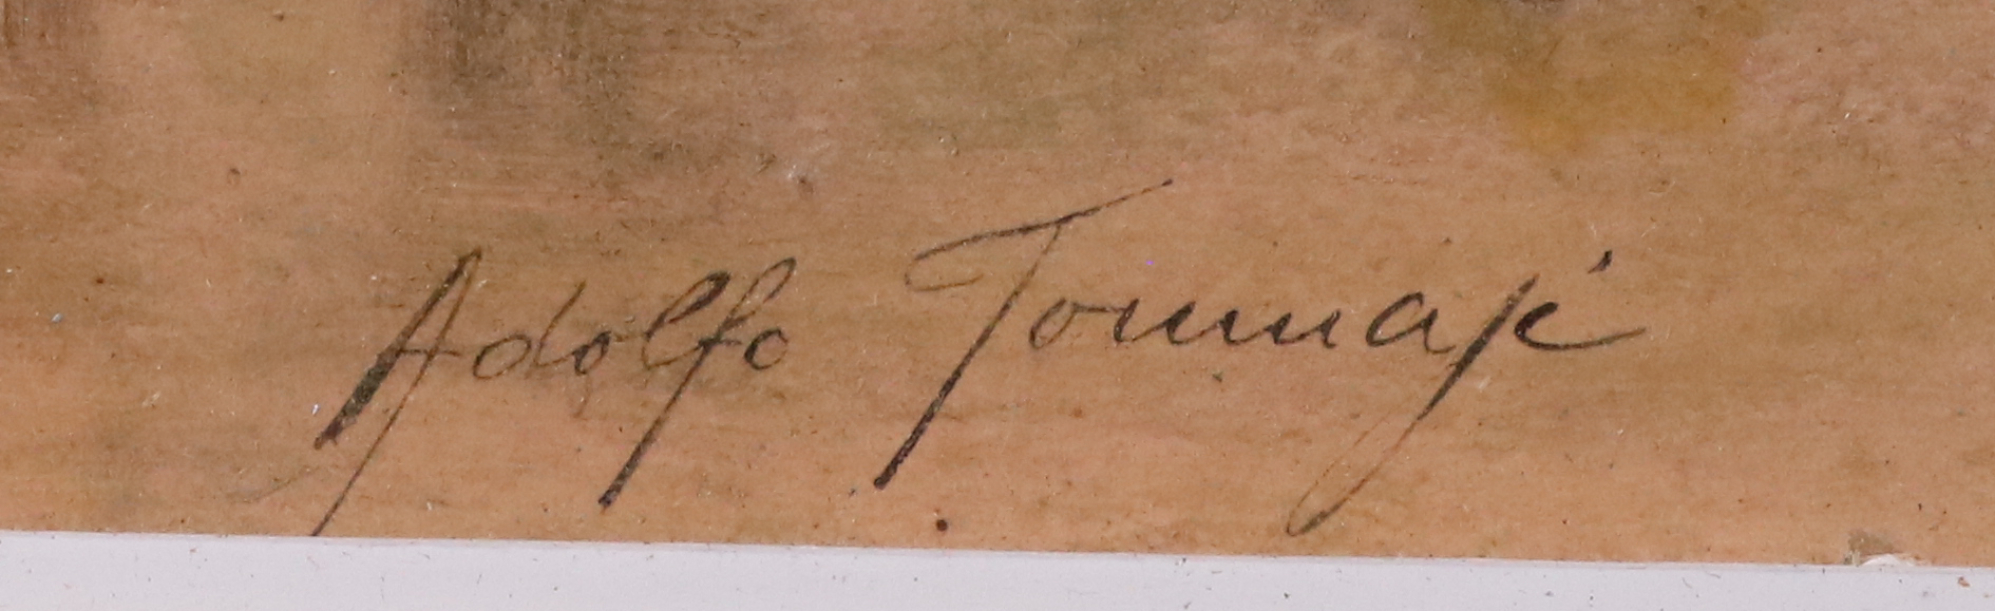 Adolfo Tommasi